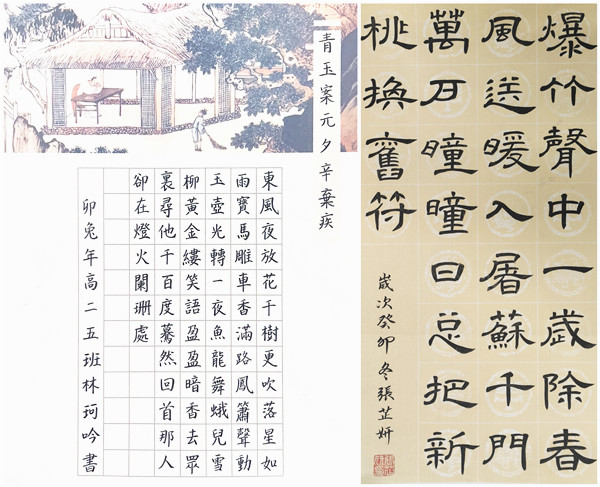 青玉案元夕辛棄疾
東風夜放花千樹更吹落星如
雨寶馬雕車香滿路鳳簫聲動
玉壺光轉一夜魚龍舞蛾兒雪
柳黃金縷笑語盈盈暗香去眾
裏尋他千百度驀然回首那人
卻在燈火闌珊處
卯兔年高二五班林珂吟書
爆竹聲中一歲除春
風送暖入屠蘇千門
萬戶曈曈日总把新
桃換舊符
歲次癸卯冬張芷妍